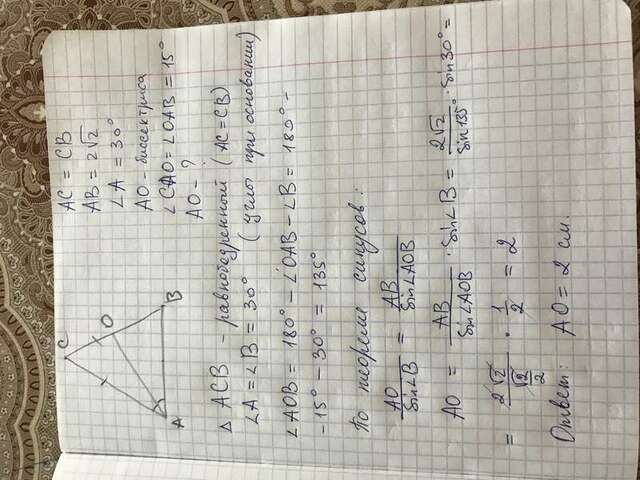 C
O
A
B
AC = CB
AB = 2√2
∠A = 30°
AO - биссектриса
∠CAO = ∠OAB = 15°
AO - ?
△ ACB - равнобедренный (AC = CB)
∠A = ∠B = 30° (углы при основании)
∠AOB = 180° - ∠OAB - ∠B = 180° -
- 15° - 30° = 135°
По теореме синусов:
AO/Sin∠B = AB/Sin∠AOB
AO = AB/Sin∠AOB · Sin∠B = 2√2/Sin135° · Sin30° =
= 2√2/(√2/2) · 1/2 = 2
Ответ: AO = 2 см.